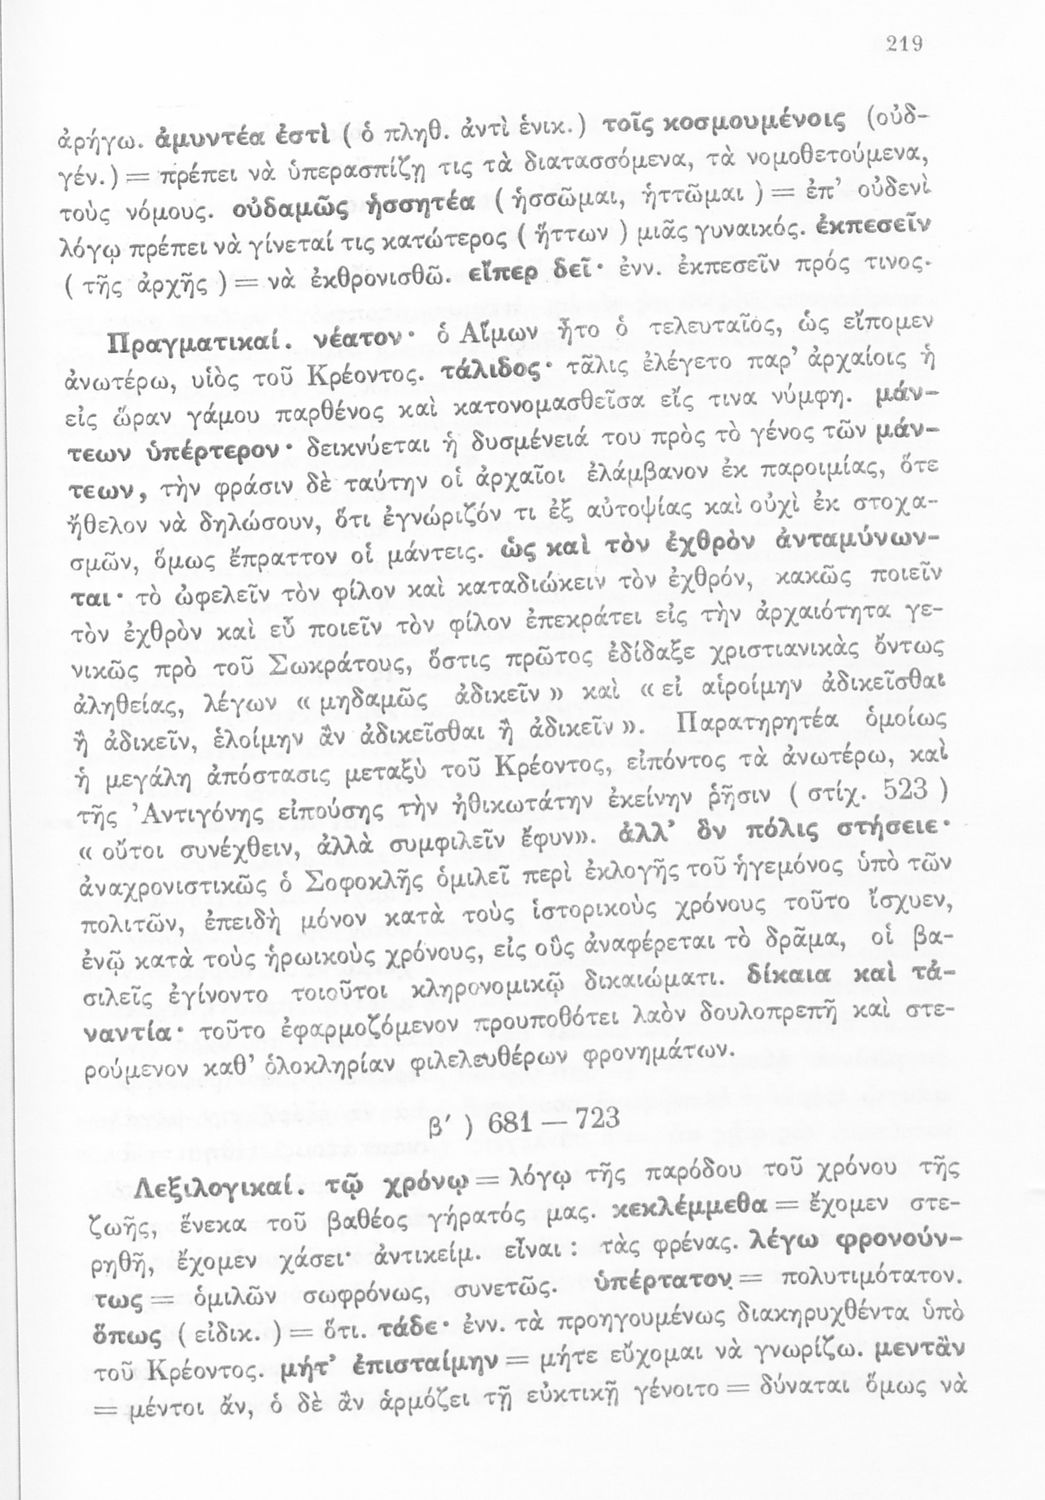 219
ἀρήγω. ἀμυντέα ἐστὶ ( ὁ πληθ. ἀντὶ ἑνικ.) τοῖς κοσμουμένοις (οὐδ-
γέν.) = πρέπει νὰ ὑπερασπίζῃ τις τὰ διατασσόμενα, τὰ νομοθετούμενα,
τοὺς νόμους. οὐδαμῶς ἡσσητέα ( ἡσσῶμαι, ἡττῶμαι ) = ἐπ’ οὐδενὶ
λόγῳ πρέπει νὰ γίνεταί τις κατώτερος ( ἥττων ) μιᾶς γυναικός. ἐκπεσεῖν
( τῆς ἀρχῆς ) = νὰ ἐκθρονισθῶ. εἴπερ δεῖ· ἐνν. ἐκπεσεῖν πρός τινος.
Πραγματικαί. νέατον· ὁ Αἵμων ἦτο ὁ τελευταῖος, ὡς εἴπομεν
ἀνωτέρω, υἱὸς τοῦ Κρέοντος. τάλιδος· τᾶλις ἐλέγετο παρ’ ἀρχαίοις ἡ
εἰς ὥραν γάμου παρθένος καὶ κατονομασθεῖσα εἴς τινα νύμφη. μάν-
τεων ὑπέρτερον· δεικνύεται ἡ δυσμένειά του πρὸς τὸ γένος τῶν μάν-
τεων, τὴν φράσιν δὲ ταύτην οἱ ἀρχαῖοι ἐλάμβανον ἐκ παροιμίας, ὅτε
ἤθελον νὰ δηλώσουν, ὅτι ἐγνώριζόν τι ἐξ αὐτοψίας καὶ οὐχὶ ἐκ στοχα-
σμῶν, ὅμως ἔπραττον οἱ μάντεις. ὡς καὶ τὸν ἐχθρὸν ἀνταμύνων-
ται· τὸ ὠφελεῖν τὸν φίλον καὶ καταδιώκειν τὸν ἐχθρόν, κακῶς ποιεῖν
τὸν ἐχθρὸν καὶ εὖ ποιεῖν τὸν φίλον ἐπεκράτει εἰς τὴν ἀρχαιότητα γε-
νικῶς πρὸ τοῦ Σωκράτους, ὅστις πρῶτος ἐδίδαξε χριστιανικὰς ὄντως
ἀληθείας, λέγων « μηδαμῶς ἀδικεῖν » καὶ « εἰ αἱροίμην ἀδικεῖσθαι
ἢ ἀδικεῖν, ἑλοίμην ἂν ἀδικεῖσθαι ἢ ἀδικεῖν ». Παρατηρητέα ὁμοίως
ἡ μεγάλη ἀπόστασις μεταξὺ τοῦ Κρέοντος, εἰπόντος τὰ ἀνωτέρω, καὶ
τῆς Ἀντιγόνης εἰπούσης τὴν ἠθικωτάτην ἐκείνην ῥῆσιν ( στίχ. 523 )
« οὔτοι συνέχθειν, ἀλλὰ συμφιλεῖν ἔφυν». ἀλλ’ ὃν πόλις στήσειε·
ἀναχρονιστικῶς ὁ Σοφοκλῆς ὁμιλεῖ περὶ ἐκλογῆς τοῦ ἡγεμόνος ὑπὸ τῶν
πολιτῶν, ἐπειδὴ μόνον κατὰ τοὺς ἱστορικοὺς χρόνους τοῦτο ἴσχυεν,
ἐνῷ κατὰ τοὺς ἡρωικοὺς χρόνους, εἰς οὓς ἀναφέρεται τὸ δρᾶμα, οἱ βα-
σιλεῖς ἐγίνοντο τοιοῦτοι κληρονομικῷ δικαιώματι. δίκαια καὶ τἀ-
ναντία· τοῦτο ἐφαρμοζόμενον προυποθότει λαὸν δουλοπρεπῆ καὶ στε-
ρούμενον καθ’ ὁλοκληρίαν φιλελευθέρων φρονημάτων.
β′ ) 681 — 723
Λεξιλογικαί. τῷ χρόνῳ = λόγῳ τῆς παρόδου τοῦ χρόνου τῆς
ζωῆς, ἕνεκα τοῦ βαθέος γήρατός μας. κεκλέμμεθα = ἔχομεν στε-
ρηθῆ, ἔχομεν χάσει· ἀντικείμ. εἶναι : τὰς φρένας. λέγω φρονούν-
τως = ὁμιλῶν σωφρόνως, συνετῶς. ὑπέρτατον = πολυτιμότατον.
ὅπως ( εἰδικ. ) = ὅτι. τάδε· ἐνν. τὰ προηγουμένως διακηρυχθέντα ὑπὸ
τοῦ Κρέοντος. μήτ’ ἐπισταίμην = μήτε εὔχομαι νὰ γνωρίζω. μεντἂν
= μέντοι ἄν, ὁ δὲ ἂν ἁρμόζει τῇ εὐκτικῇ γένοιτο = δύναται ὅμως νὰ